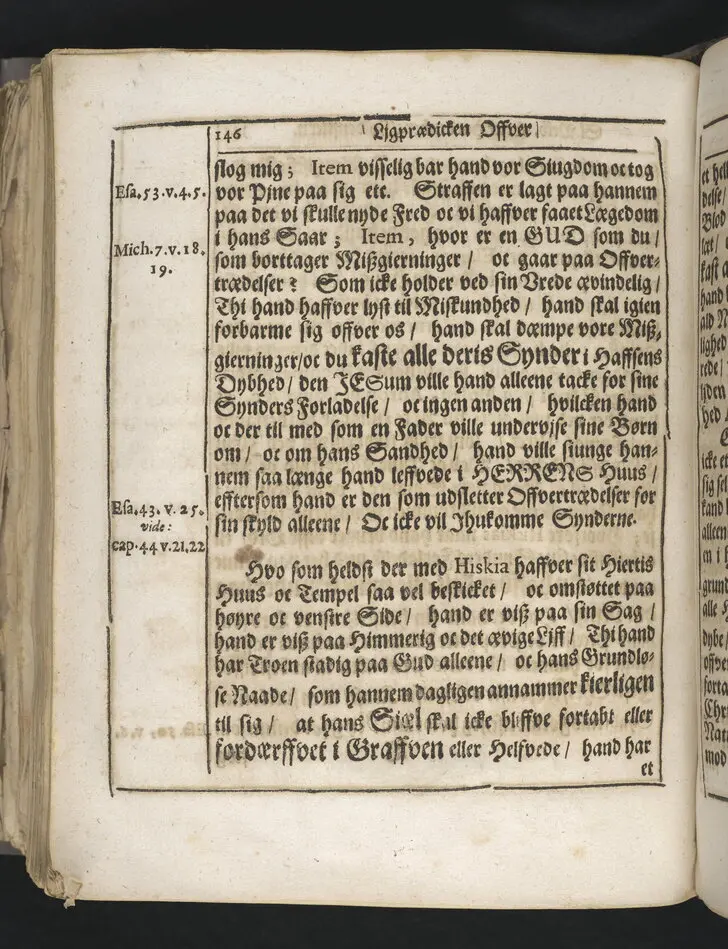 146
Ljgprædicken Offver
slog mig; Item visselig bar hand vor Siugdom oc tog
Esa.53.v.4.5.
vor Pjne paa sig etc. Straffen er lagt paa hannem
paa det vi skulle nyde Fred oc vi haffver faaet Lægedom
i hans Saar; Item, hvor er en GUD som du /
Mich.7.v.18.
19.
som borttager Mißgierninger / oc gaar paa Offver-
trædelser? Som icke holder ved sin Vrede ævindelig /
Thi hand haffver lyst til Miskundhed / hand skal igien
forbarme sig offver os / hand skal dæmpe vore Miß-
gierninger/oc du kaste alle deris Synder i Haffsens
Dybhed / den JESum ville hand alleene tacke for sine
Synders Forladelse / oc ingen anden / hvilcken hand
oc der til med som en Fader ville undervjse sine Børn
om / oc om hans Sandhed / hand ville siunge han-
nem saa længe hand leffvede i HERRENS Huus /
Esa.43. v. 25.
vide:
cap.44 v.21.22
efftersom hand er den som udsletter Offvertrædelser for
sin skyld alleene / Oc icke vil Jhukomme Synderne.
Hvo som heldst der med Hiskia haffver sit Hiertis
Huus oc Tempel saa vel beskicket / oc omstøttet paa
høyre oc venstre Side / hand er viß paa sin Sag /
hand er viß paa Himmerig oc det ævige Liff / Thi hand
har Troen stadig paa Gud alleene / oc hans Grundlø-
se Naade / som hannem dagligen annammer kierligen
til sig / at hans Siæl skal icke bliffve fortabt eller
fordærffvet i Graffven eller Helfvede / hand har
et